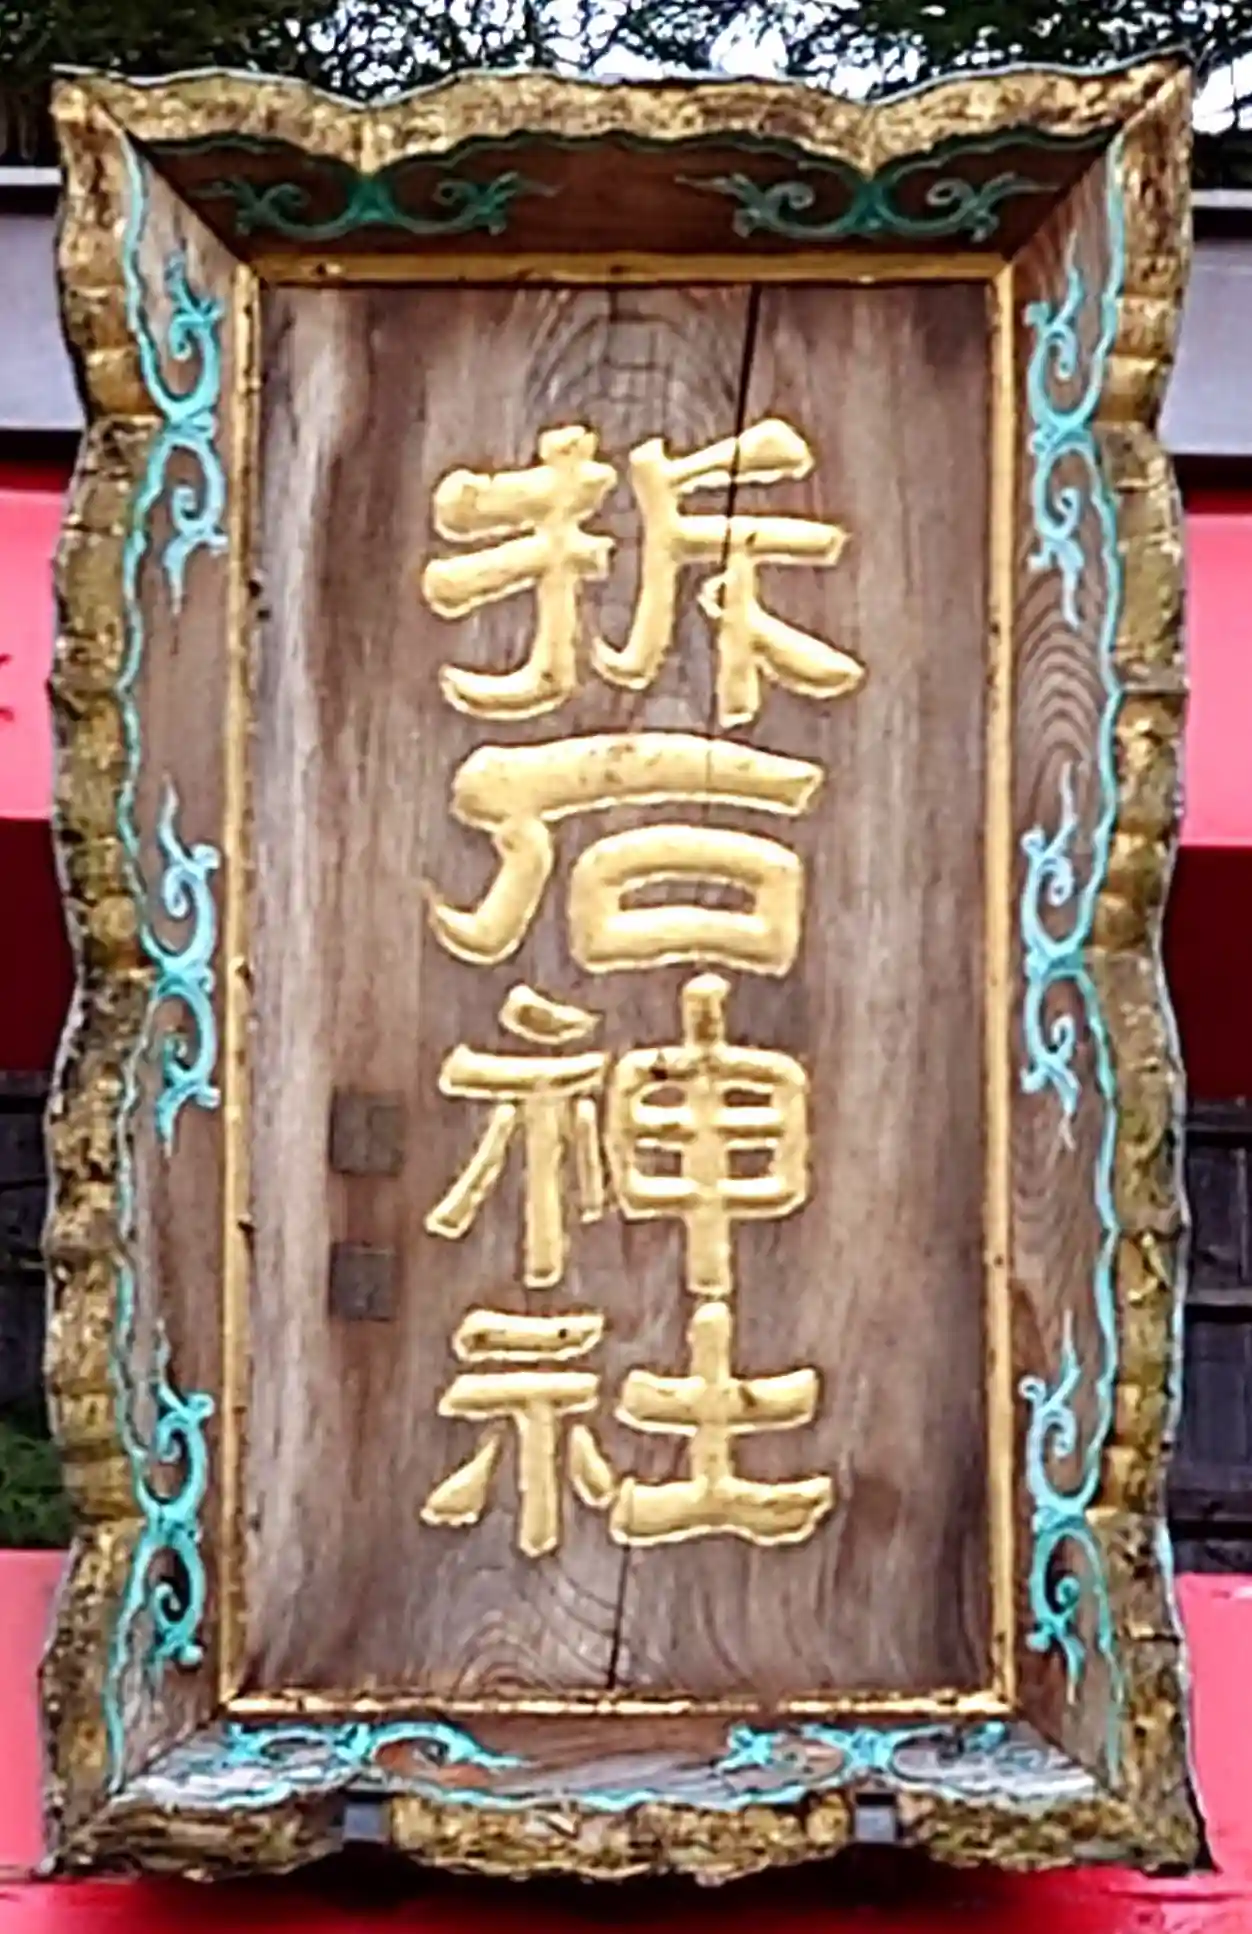 拆石神社